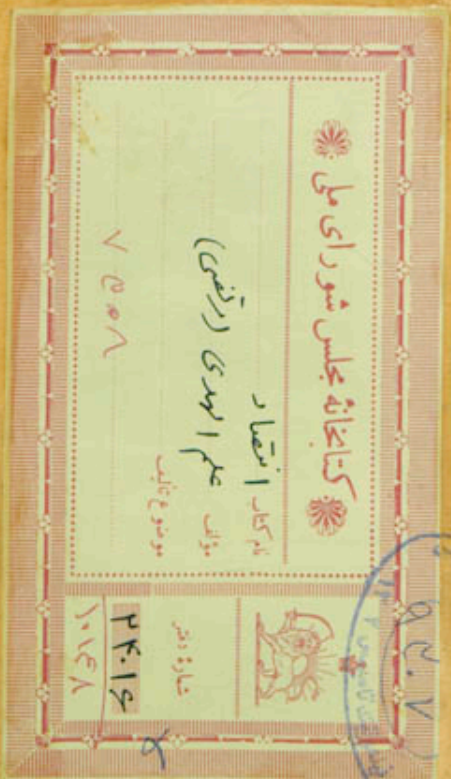 کتابخانهٔ مجلس شورای ملی
نام کتاب انتصار
مؤلف علم الهدی (مرتضی)
موضوع تألیف
۷۵۰۸
شمارهٔ دفتر
۲۴۰۱۶
۱۰۱۴۸